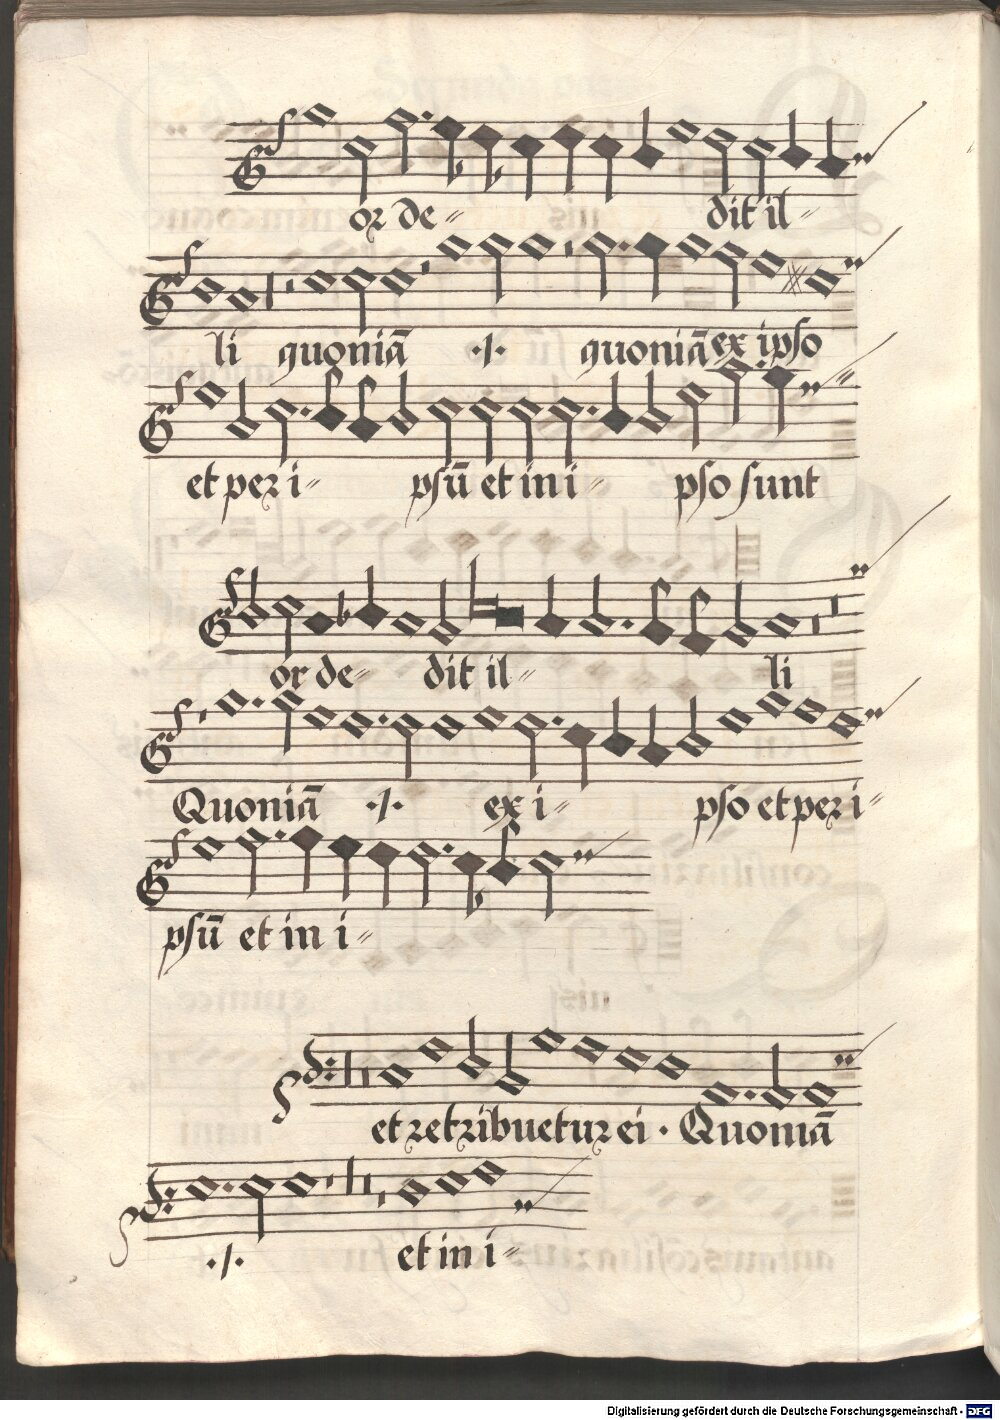 or de- dit il-
li quoniā ·/· quoniā ex ipso
et per i- psū et in i- pso sunt
or de- dit il- li
Quoniā ·/· ex i- pso et per i-
psū et in i-
et retribuetur ei · Quoniā
·/· et in i-
Digitalisierung gefördert durch die Deutsche Forschungsgemeinschaft - DFG